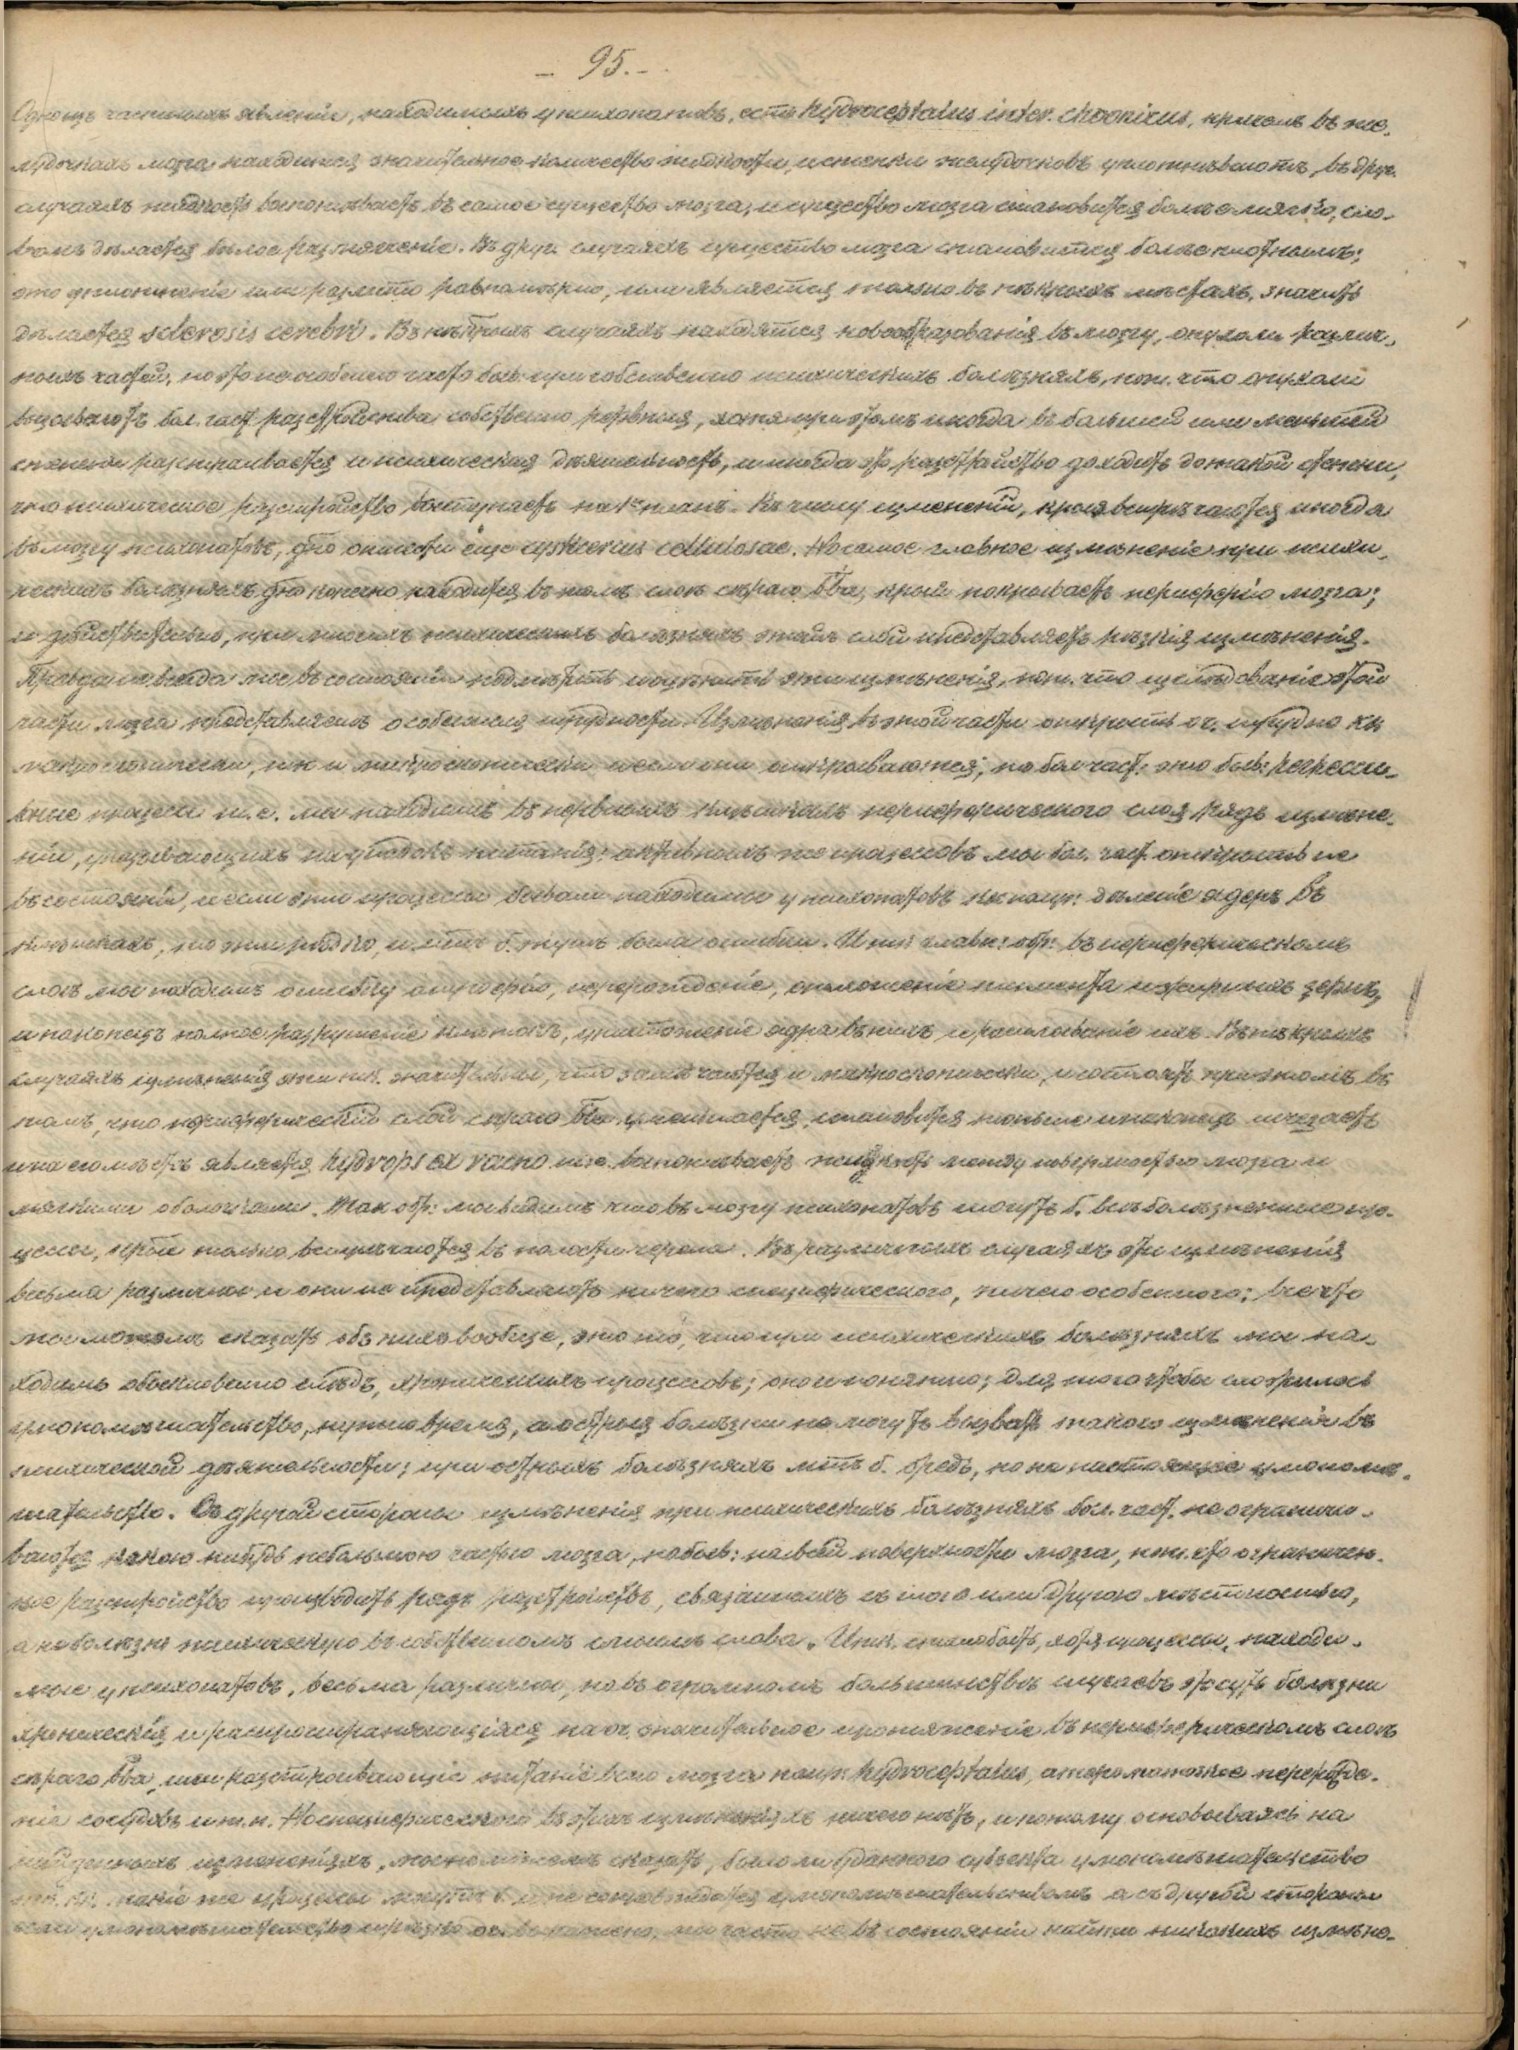 – 95. –
Одно изъ частыхъ явленій, находимыхъ у психопатовъ, есть hydrocephalus inter. chronicus, причемъ въ же-
лудочкахъ мозга находится значительное количество жидкости, и стенки желудочковъ уплотняются, въ друг.
случаяхъ жидкость въ самое существо мозга, и существо мозга становится болѣе мягкимъ, сло-
вомъ дѣлается бѣлое размягченіе. Въ друг. случаяхъ существо мозга становится болѣе плотнымъ;
это уплотненіе или разлито равномѣрно, или является только въ нѣкрыхъ мѣстахъ, значитъ
дѣлается sclerosis cerebri. Въ нѣкрыхъ случаяхъ находятся новообразованія въ мозгу, опухоли различ-
ныхъ частей, но это не особенно часто быв. при собственно психическихъ болѣзняхъ, пот. что опухоли
вызываютъ бол. част. разстройства собственно нервныя, хотя при этомъ иногда въ большей или меньшей
степени разстраивается и психическая дѣятельность, и иногда это разстройство доходитъ до такой степени,
что психическое разстройство выступаетъ на 1й планъ. Къ числу измененій, крыя встрѣчаются иногда
въ мозгу психопатовъ, отнести еще cysticercus cellulosae. Но самое главное измѣненіе при психи-
ческихъ болѣзняхъ конечно находится въ томъ слоѣ сѣраго в-ва, крый покрываетъ периферію мозга;
и дѣйствительно, при многихъ психическихъ болѣзняхъ этотъ слой представляетъ рѣзкія измѣненія.
Правда не всегда мы въ состояніи подмѣтить и оцѣнить эти измѣненія, пот. что изслѣдованіе этой
части мозга представляетъ особенныя трудности. Измѣненія въ этой части открыть оч. трудно кк
макроскопически, тк и микроскопически и если они открываются, то бол. част: это быв: регресси-
вные процессы т.е. мы находимъ въ нервныхъ клѣткахъ периферическаго слоя рядъ измѣне-
ній, указывающихъ на упадокъ питанія; активныхъ же процессовъ мы бол. част. открыть не
въ состояніи, и если эти процессы бывали находимы у психопатовъ кк напр: дѣленіе ядеръ въ
клѣткахъ, то это рѣдко, и мтъ б. тутъ была ошибка. Итк главн: обр: въ периферическомъ
слоѣ мы находимъ атрофію, перерожденіе, отложеніе пигмента и жирныхъ зеренъ,
и наконецъ полное разрушеніе клѣтокъ, уничтоженіе ядра въ нихъ и расплываніе ихъ. Въ нѣкрыхъ
случаяхъ измѣненія эти тк. значительны, что замѣчаются и макроскопически, и состоятъ при этомъ въ
томъ, что периферическій слой сѣраго в-ва уменьшается, становится тоньше и наконецъ исчезаетъ
и на его мѣстѣ является hydrops ex vacuo т.е. выпотѣваетъ жидкость между поверхностью мозга и
мягкими оболочками. Так. обр: мы видимъ что въ мозгу психопатовъ могутъ б. всѣ болѣзненные про-
цессы, крые только встрѣчаются въ полости черепа. Въ различныхъ случаяхъ эти измѣненія
весьма различны и они не представляютъ ничего специфическаго, ничего особеннаго; все что
мы можемъ сказать объ нихъ вообще, это то, что при психическихъ болѣзняхъ мы на-
ходимъ обыкновенно слѣды хроническихъ процессовъ; оно и понятно; для того чтобы
умопомѣшательство, нужно время, а острыя болѣзни не могутъ вызвать такого измѣненія въ
психической дѣятельности; при острыхъ болѣзняхъ мтъ б. бредъ, но не настоящее умопомѣ-
шательство. Съ другой стороны измѣненія при психическихъ болѣзняхъ бол. част. не ограничи-
ваются какою нибудь небольшою частью мозга, но быв: на всей поверхности мозга, пот. что ограничен-
ное разстройство производитъ рядъ разстройствъ, связанныхъ съ тою или другою мѣстностью,
а не болѣзнь психическую въ собственномъ смыслѣ слова. Итк. стало быть, хотя процессы, находи-
мые у психопатовъ, весьма различны, но въ огромномъ большинствѣ случаевъ это суть болѣзни
хроническія и распространяющіяся на оч. значительное протяженіе въ периферическомъ слоѣ
сѣраго в-ва, или разстраивающіе питаніе всего мозга напр: hydrocephalus, атероматозное перерожде-
ніе сосудовъ и т. п. Но специфическаго въ этихъ измѣненіяхъ ничего нѣтъ, и потому основываясь на
найденныхъ измѣненіяхъ, мы не можемъ сказать, было ли у даннаго субъекта умопомѣшательство
такіе же процессы могутъ б. и не сопровождаться умопомѣшательствомъ а съ другой стороны
если умопомѣшательство и рѣзко б. выражено, мы часто не въ состояніи найти никакихъ измѣне-